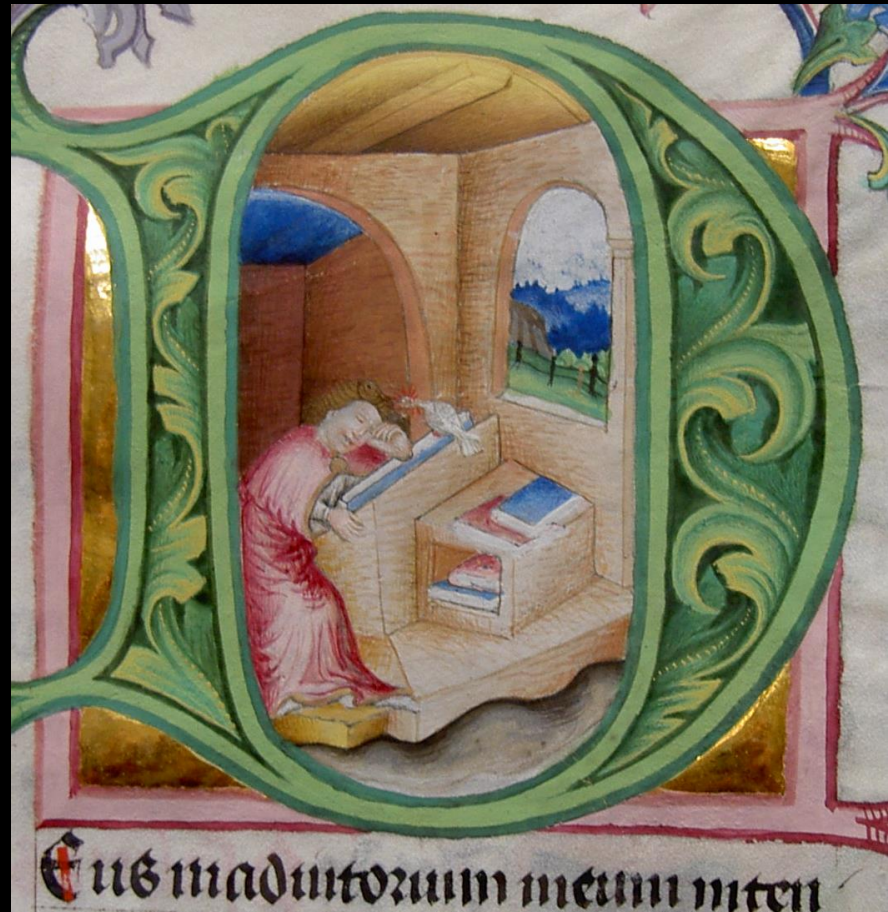 D
Eus in adiutorium meum inten